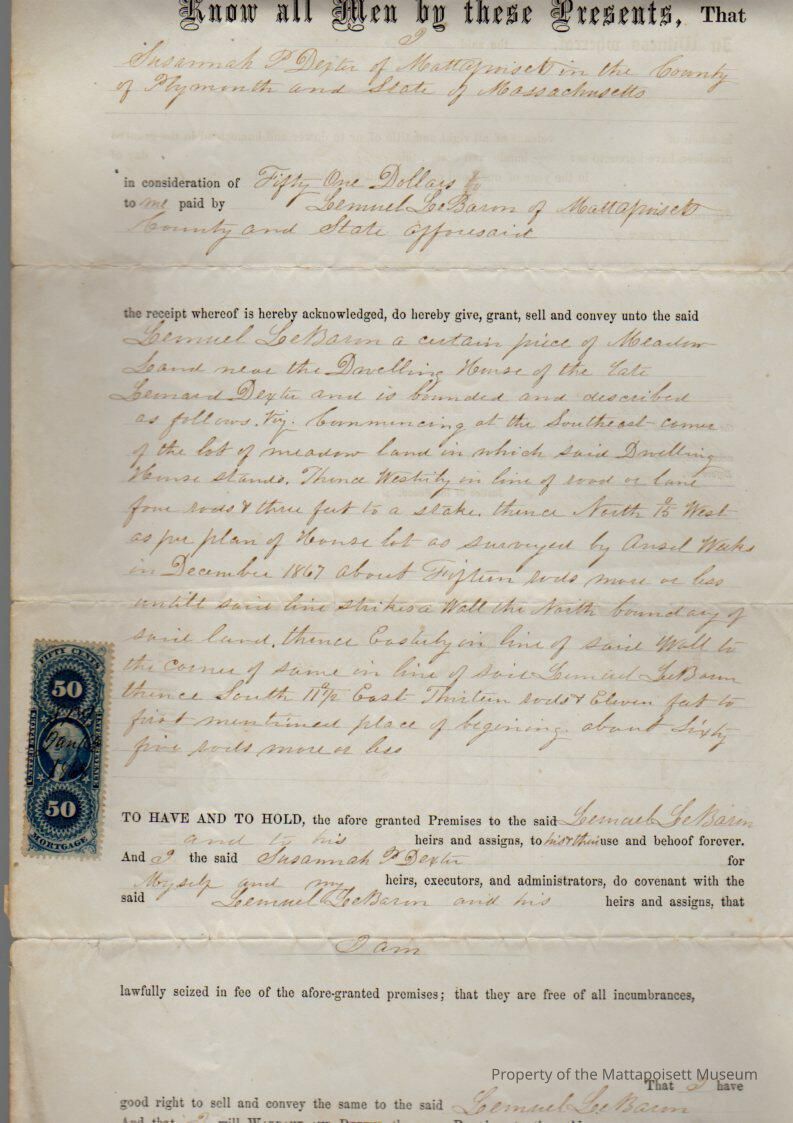 Know all Men by these Presents, That
I
Susannah P Dexter of Mattapoisett in the County
of Plymouth and State of Massachusetts
in consideration of Fifty One Dollars
to me paid by Lemuel LeBaron of Mattapoisett
County and State afforesaid
the receipt whereof is hereby acknowledged, do hereby give, grant, sell and convey unto the said
Lemuel LeBaron a certain piece of Meadow
Land near the Dwelling House of the late
Leonard Dexter and is bounded and described
as follows. Viz. Commencing at the Southeast corner
of the lot of meadow land in which said Dwelling
House stands. Thence Westerly in line of road or lane
four rods & three feet to a stake. thence North 15° West
as per plan of House lot as surveyed by Ansel Weeks
in December 1867 about Fifteen rods more or less
untill said line strikes a Wall the North boundary of
said land. thence Easterly in line of said Wall to
the corner of same in line of said Lemuel LeBaron
thence South 11°1/2 East Thirteen rods & Eleven feet to
first mentioned place of begining. about Sixty
five rods more or less
FIFTY CENTS
50
UNITED STATES
50
MORTGAGE
TO HAVE AND TO HOLD, the afore granted Premises to the said Lemuel LeBaron
and to his heirs and assigns, to his & their use and behoof forever.
And I the said Susannah P Dexter for
Myself and my heirs, executors, and administrators, do covenant with the
said Lemuel LeBaron and his heirs and assigns, that
I am
lawfully seized in fee of the afore-granted premises; that they are free of all incumbrances,
Property of the Mattapoisett Museum
That I have
good right to sell and convey the same to the said Lemuel LeBaron
And that I will